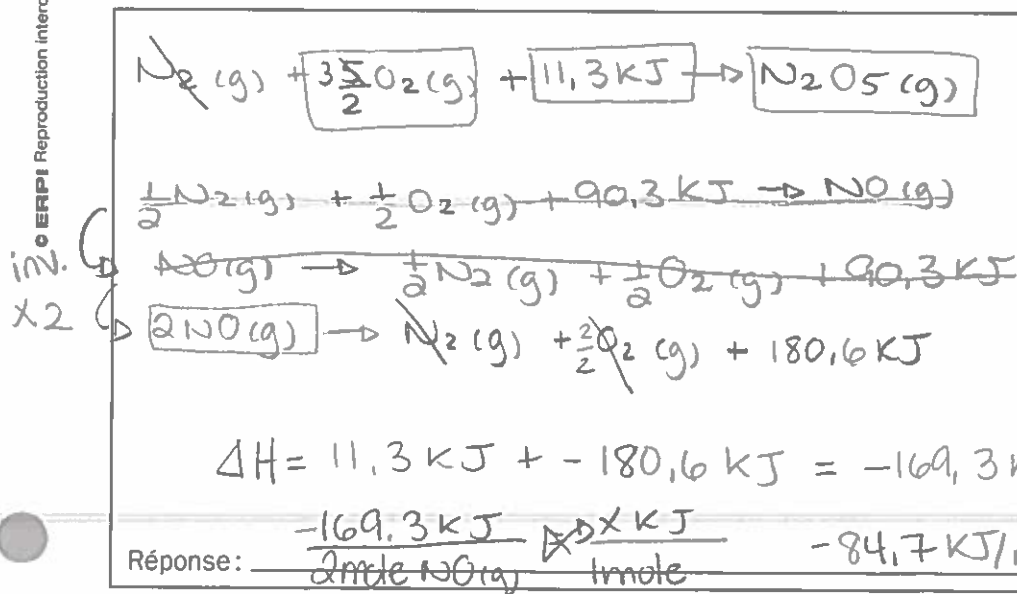 © ERPI Reproduction interd
N2 (g) + 3 5/2 O2 (g) + 11,3 KJ → N2O5 (g)
1/2 N2 (g) + 1/2 O2 (g) + 90,3 KJ → NO (g)
inv. NO (g) → 1/2 N2 (g) + 1/2 O2 (g) + 90,3 KJ
x2 2NO (g) → N2 (g) + 2/2 O2 (g) + 180,6 KJ
ΔH = 11,3 KJ + - 180,6 KJ = -169,3 K
-169.3 KJ / 2mole NO(g) x KJ / 1mole -84,7 KJ/
Réponse: